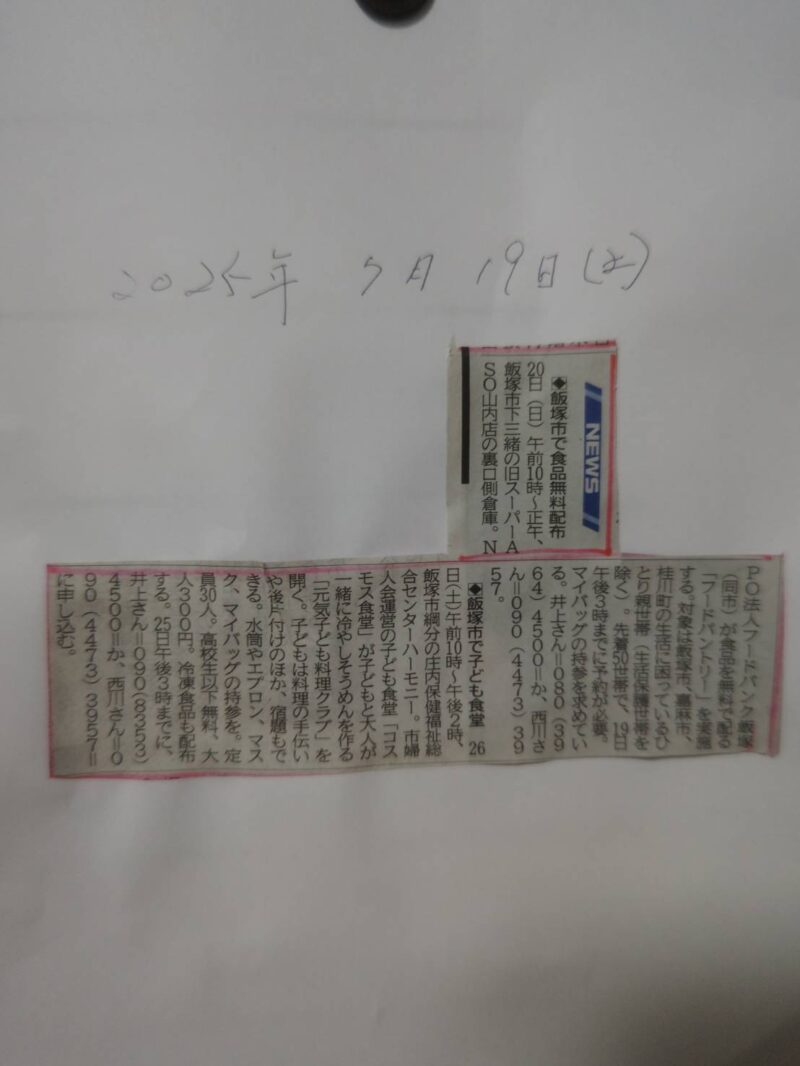 2025年 7月 19日(土)
NEWS
◆飯塚市で食品無料配布
20日(日)午前10時〜正午、
飯塚市下三緒の旧スーパーA
SO山内店の裏口側倉庫。N
PO法人フードバンク飯塚
(同市)が食品を無料で配る
「フードパントリー」を実施
する。対象は飯塚市、嘉麻市、
桂川町の生活に困っているひ
とり親世帯(生活保護世帯を
除く)。先着50世帯で、19日
午後3時までに予約が必要。
マイバッグの持参を求めてい
る。井上さん=080(39
64)4500=か、西川さ
ん=090(4473)39
57。
◆飯塚市で子ども食堂 26
日(土)午前10時〜午後2時、
飯塚市綱分の庄内保健福祉総
合センターハーモニー。市婦
人会運営の子ども食堂「コス
モス食堂」が子どもと大人が
一緒に冷やしそうめんを作る
「元気子ども料理クラブ」を
開く。子どもは料理の手伝い
や後片付けのほか、宿題もで
きる。水筒やエプロン、マス
ク、マイバッグの持参を。定
員30人。高校生以下無料、大
人300円。冷凍食品も配布
する。25日午後3時までに、
井上さん=090(8353)
4500=か、西川さん=0
90(4473)3957=
に申し込む。